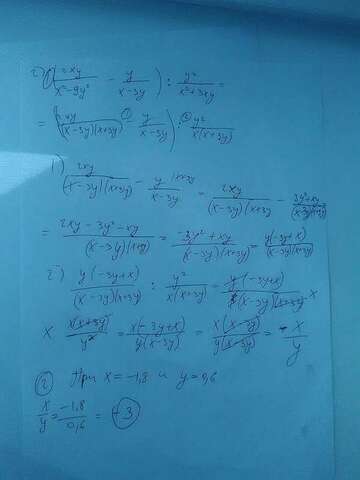 2) (2xy/(x²-9y²) - y/(x-3y)) : y²/(x²+3xy) =
= (2xy/((x-3y)(x+3y)) - y/(x-3y)) : y²/(x(x+3y))
1) 2xy/((x-3y)(x+3y)) - y/(x-3y) = 2xy/((x-3y)(x+3y)) - (3y²+xy)/((x-3y)(x+3y))
= (2xy-3y²-xy)/((x-3y)(x+3y)) = (-3y²+xy)/((x-3y)(x+3y)) = y(-3y+x)/((x-3y)(x+3y))
2) y(-3y+x)/((x-3y)(x+3y)) : y²/(x(x+3y)) = y(-3y+x)/((x-3y)(x+3y)) x
x x(x+3y)/y² = x(-3y+x)/(y(x-3y)) = x(x-3y)/(y(x-3y)) = x/y
2 При x=-1,8 и y=0,6
x/y = -1,8/0,6 = -3